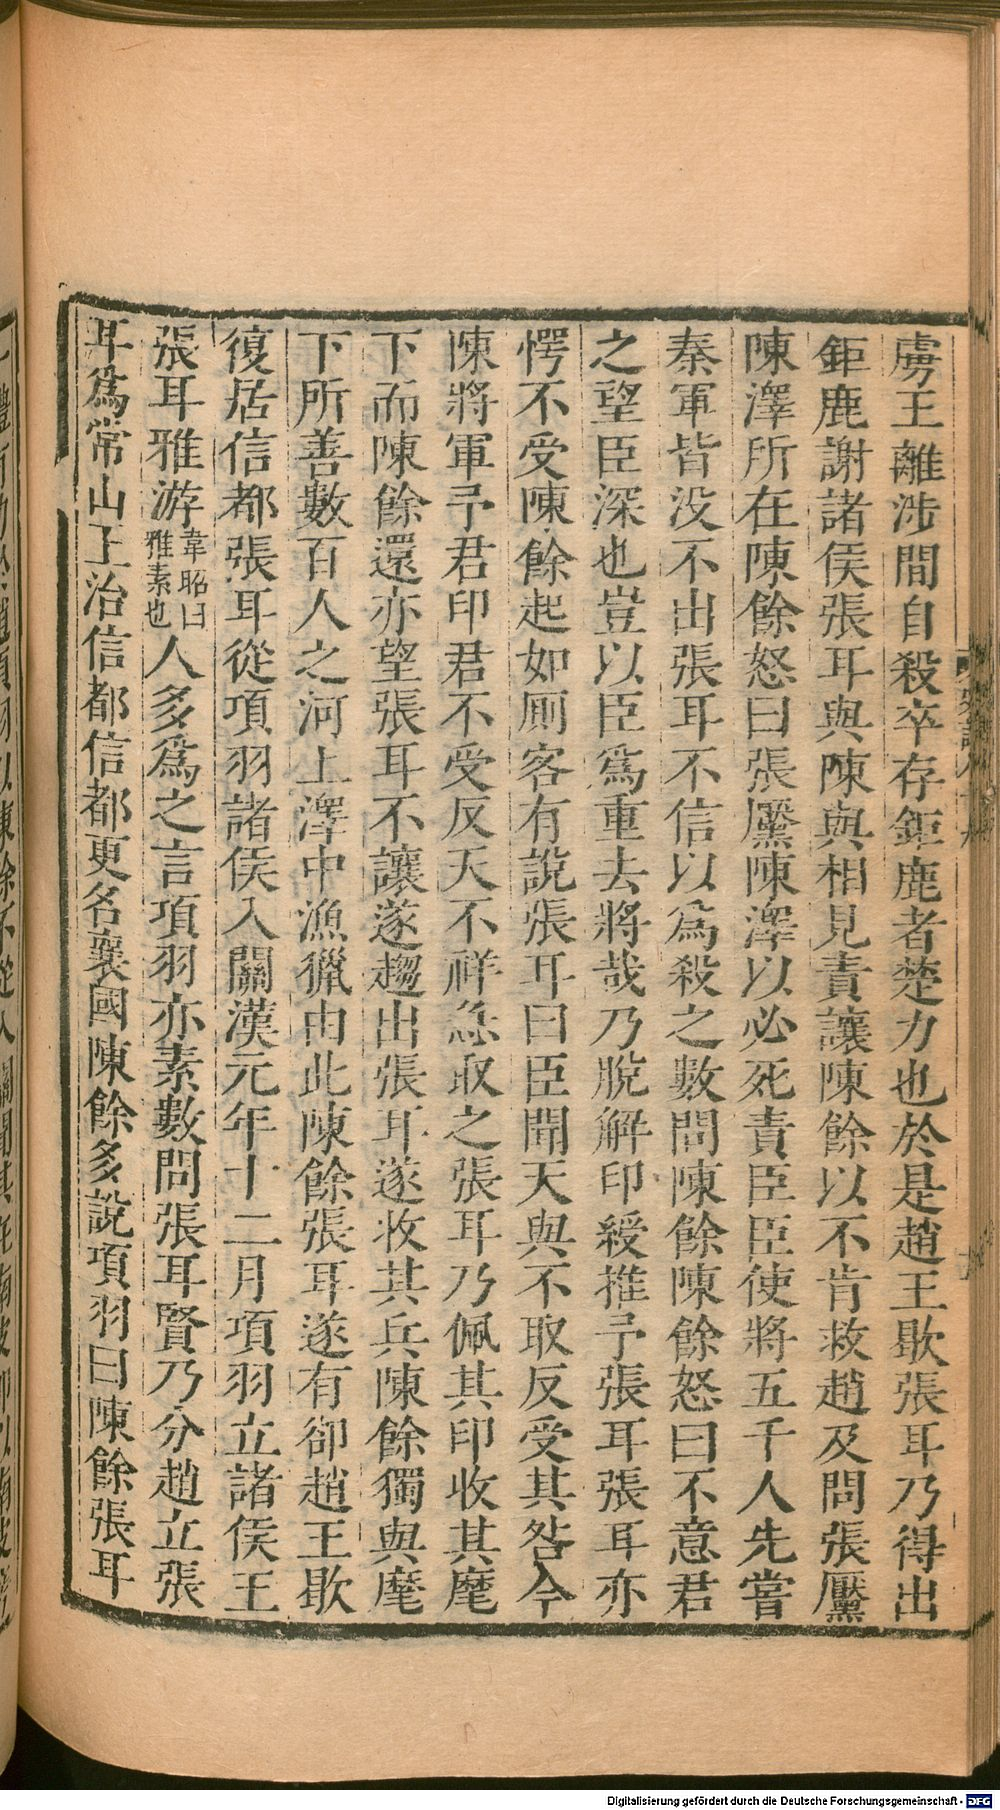 虜王離涉間自殺卒存鉅鹿者楚力也於是趙王歇張耳乃得出
鉅鹿謝諸侯張耳與陳與相見責讓陳餘以不肯救趙及問張黶
陳澤所在陳餘怒曰張黶陳澤以必死責臣臣使將五千人先嘗
秦軍皆没不出張耳不信以為殺之數問陳餘陳餘怒曰不意君
之望臣深也豈以臣為重去將哉乃脫解印綬推予張耳張耳亦
愕不受陳餘起如厠客有說張耳曰臣聞天與不取反受其咎今
陳將軍予君印君不受反天不祥急取之張耳乃佩其印收其麾
下而陳餘還亦望張耳不讓遂趨出張耳遂收其兵陳餘獨與麾
下所善數百人之河上澤中漁獵由此陳餘張耳遂有卻趙王歇
復居信都張耳從項羽諸侯入關漢元年十二月項羽立諸侯王
張耳雅游韋昭曰雅素也人多為之言項羽亦素數問張耳賢乃分趙立張
耳為常山王治信都信都更名襄國陳餘多說項羽曰陳餘張耳
Digitalisierung gefördert durch die Deutsche Forschungsgemeinschaft - DFG